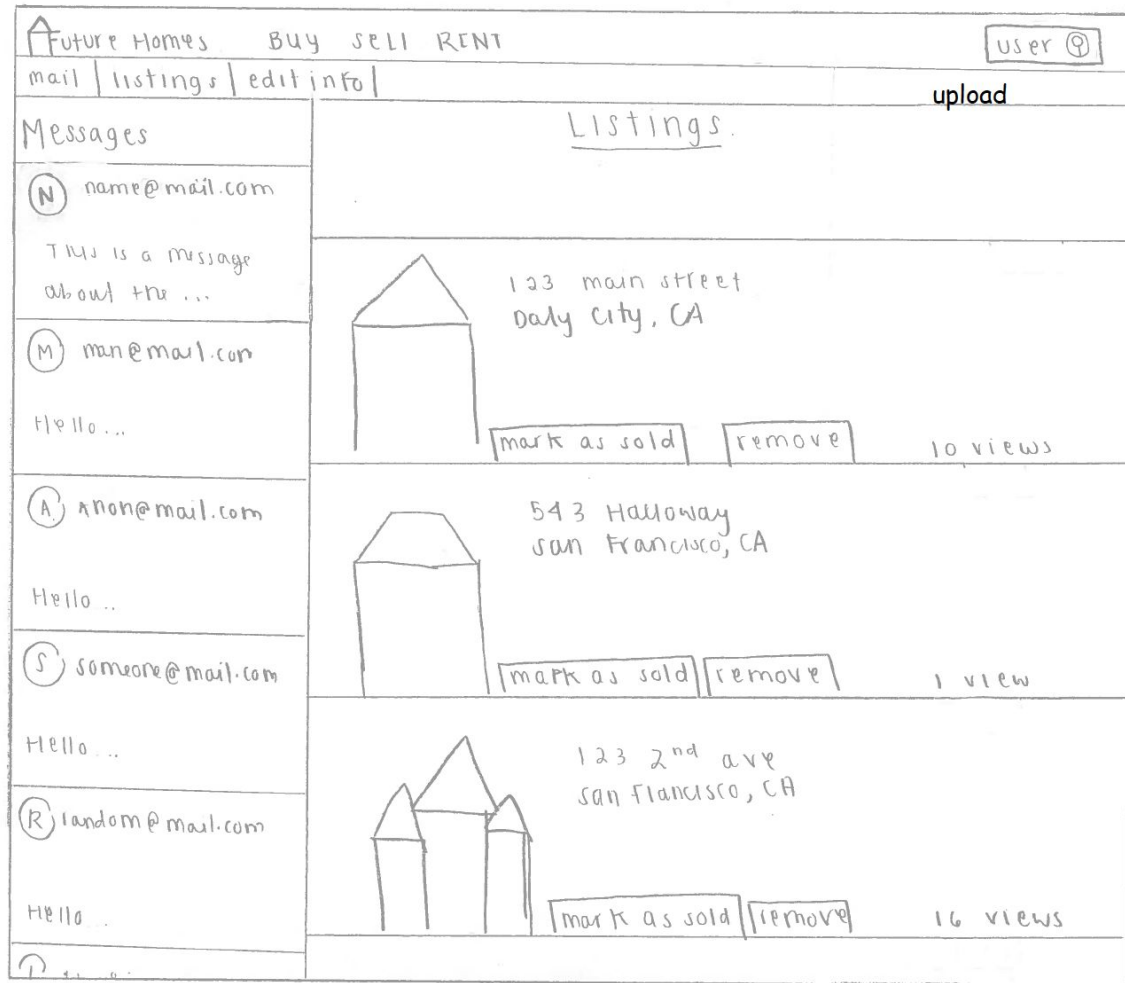 Future Homes BUY SELL RENT
user
mail listings edit info
upload
Messages
Listings.
N name@mail.com
This is a message
about the ...
M man@mail.com
Hello...
A Anon@mail.com
Hello...
S someone@mail.com
Hello...
R random@mail.com
Hello...
123 main street
Daly City, CA
mark as sold remove 10 views
543 Halloway
San Francisco, CA
mark as sold remove 1 view
123 2nd ave
San Francisco, CA
mark as sold remove 16 views